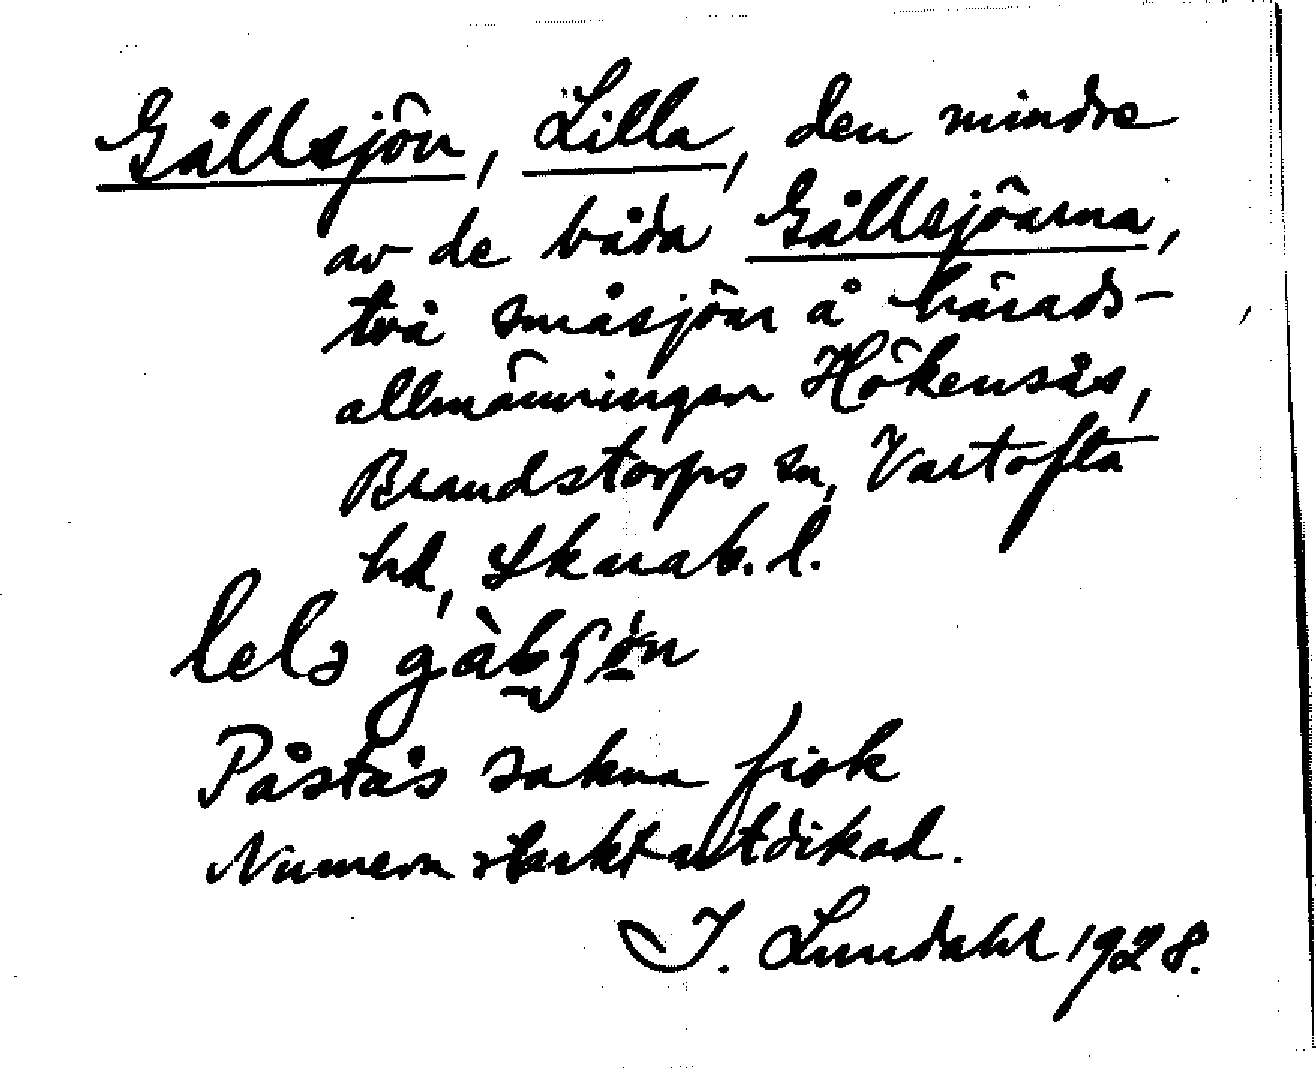 Gållsjön, Lilla, den mindre
av de båda Gållsjöarna,
två småsjöar å härads-
allmänningen Hökensås,
Brandstorps sn, Vartofta
hd, Skarab. l.
Påstås sakna fisk
Numera starkt utdikad.
I. Lundahl 1928.